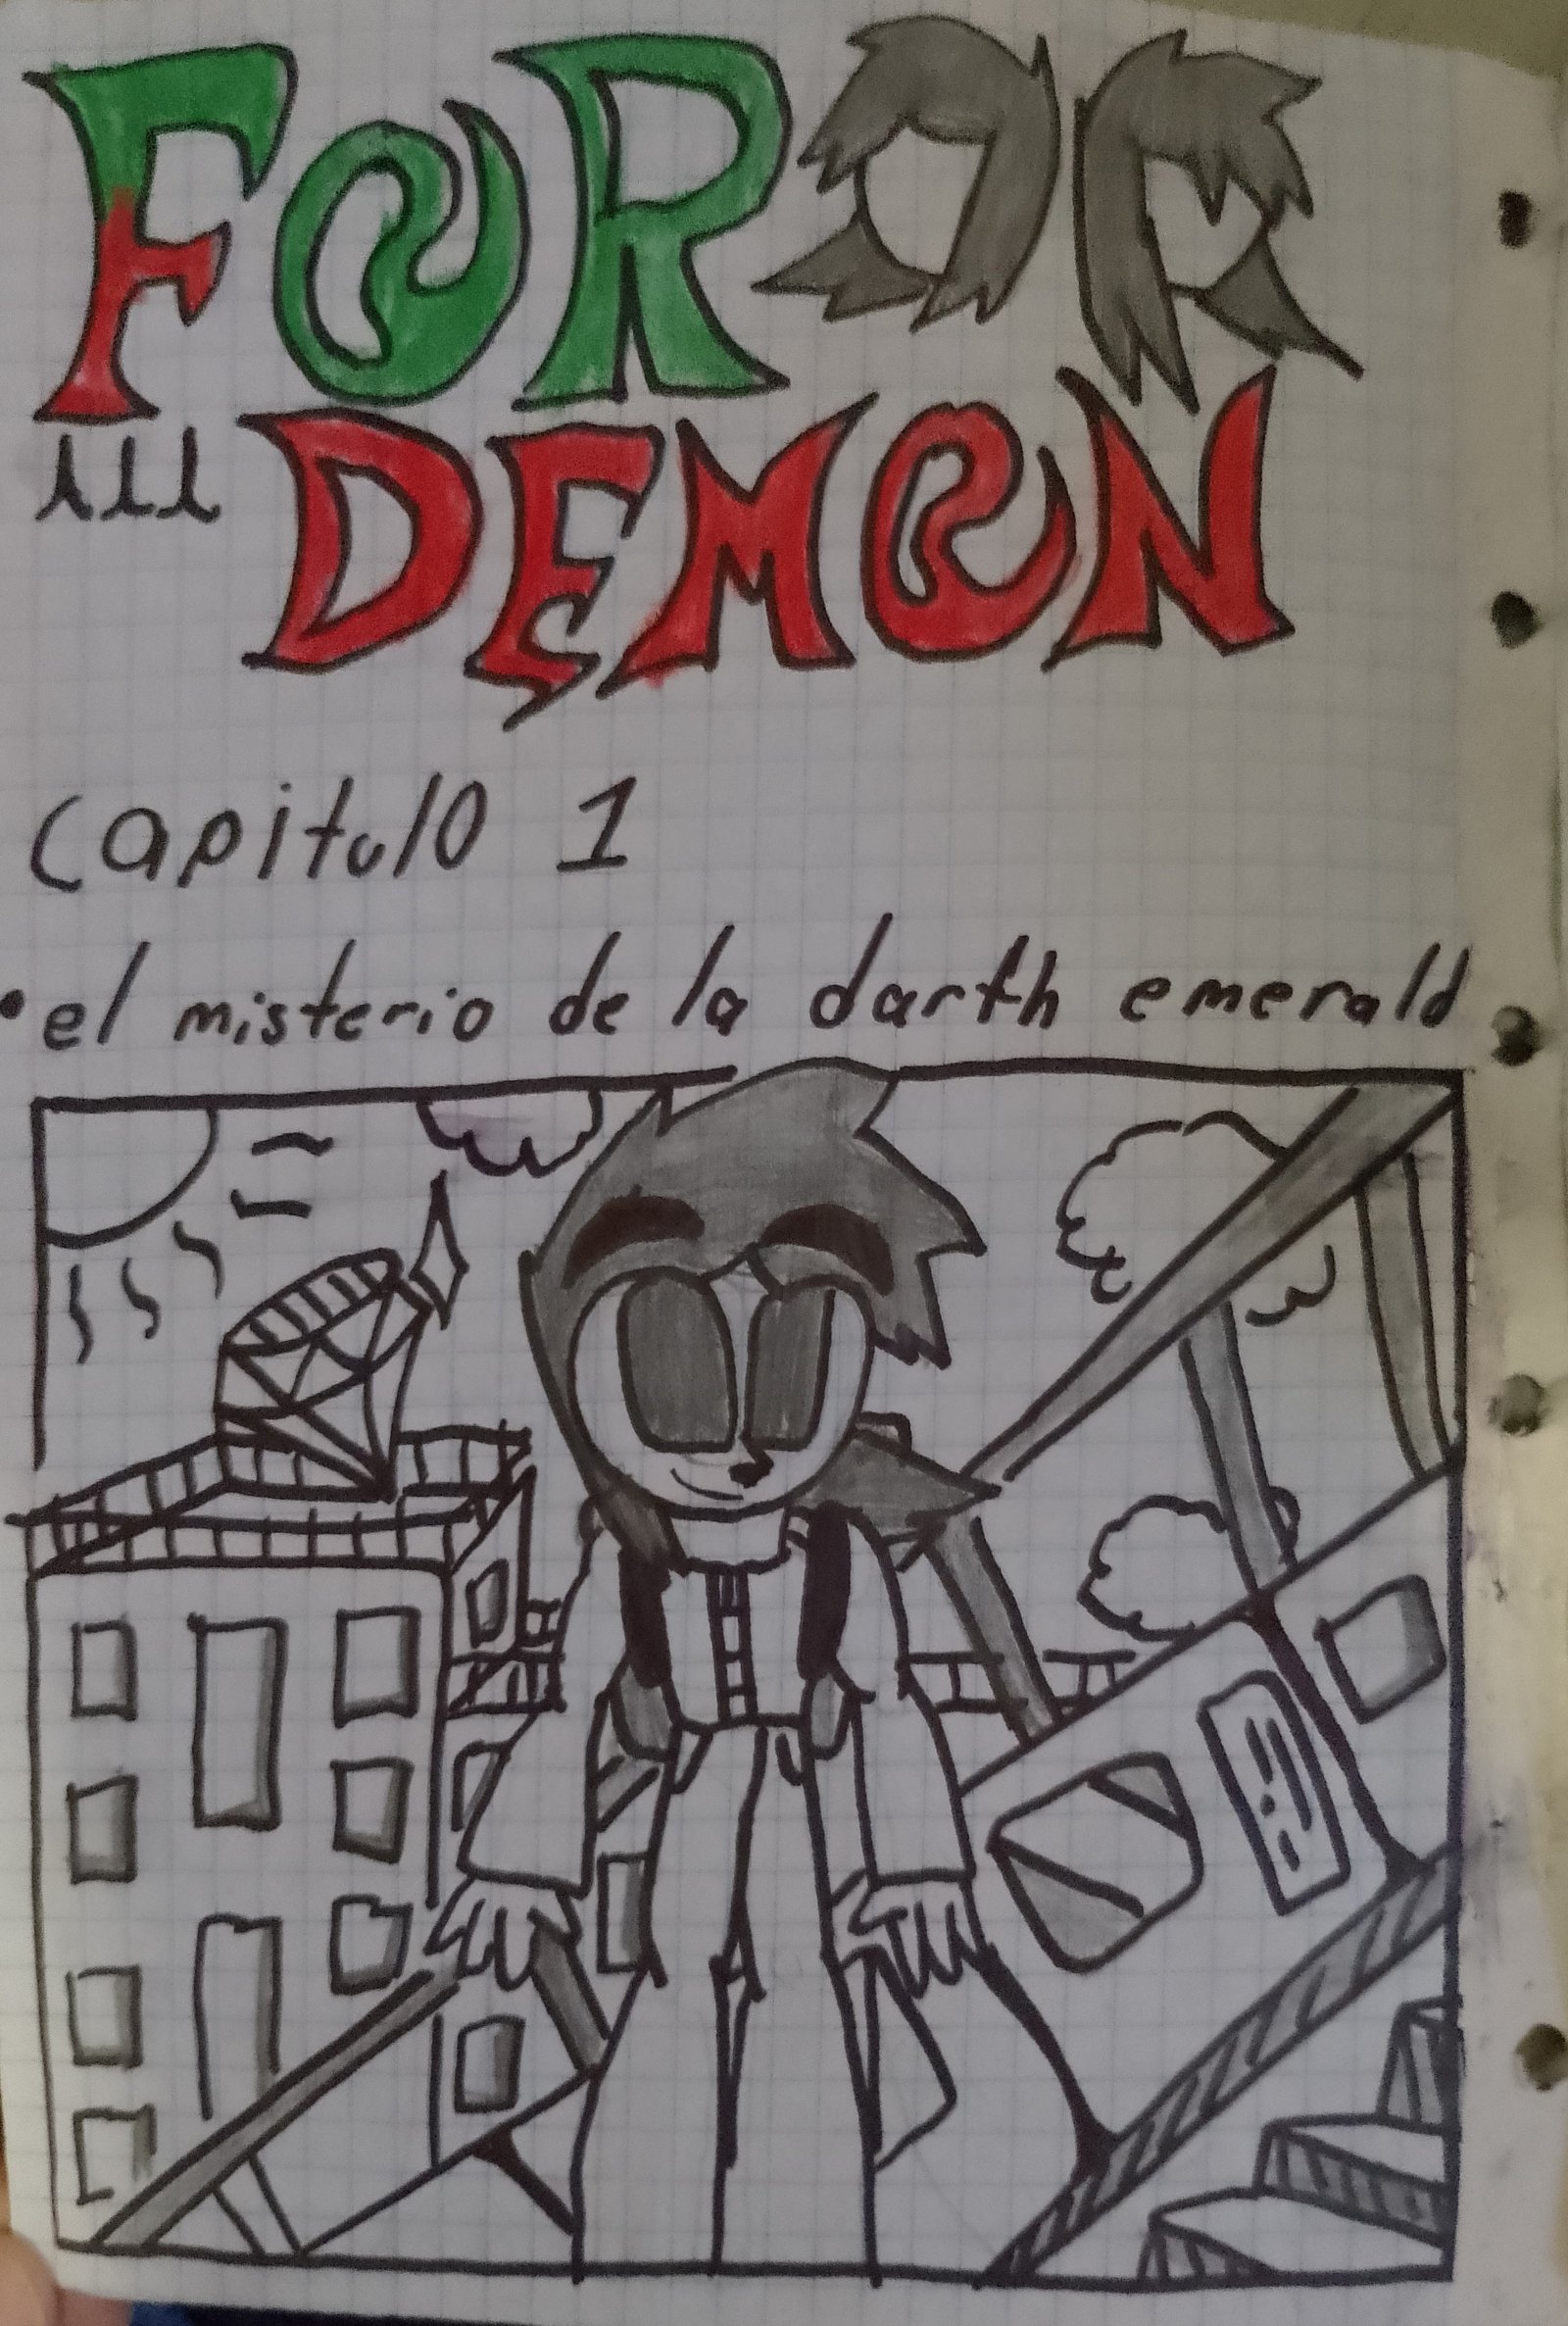 FOR
DEMON
capitulo 1
• el misterio de la darth emerald